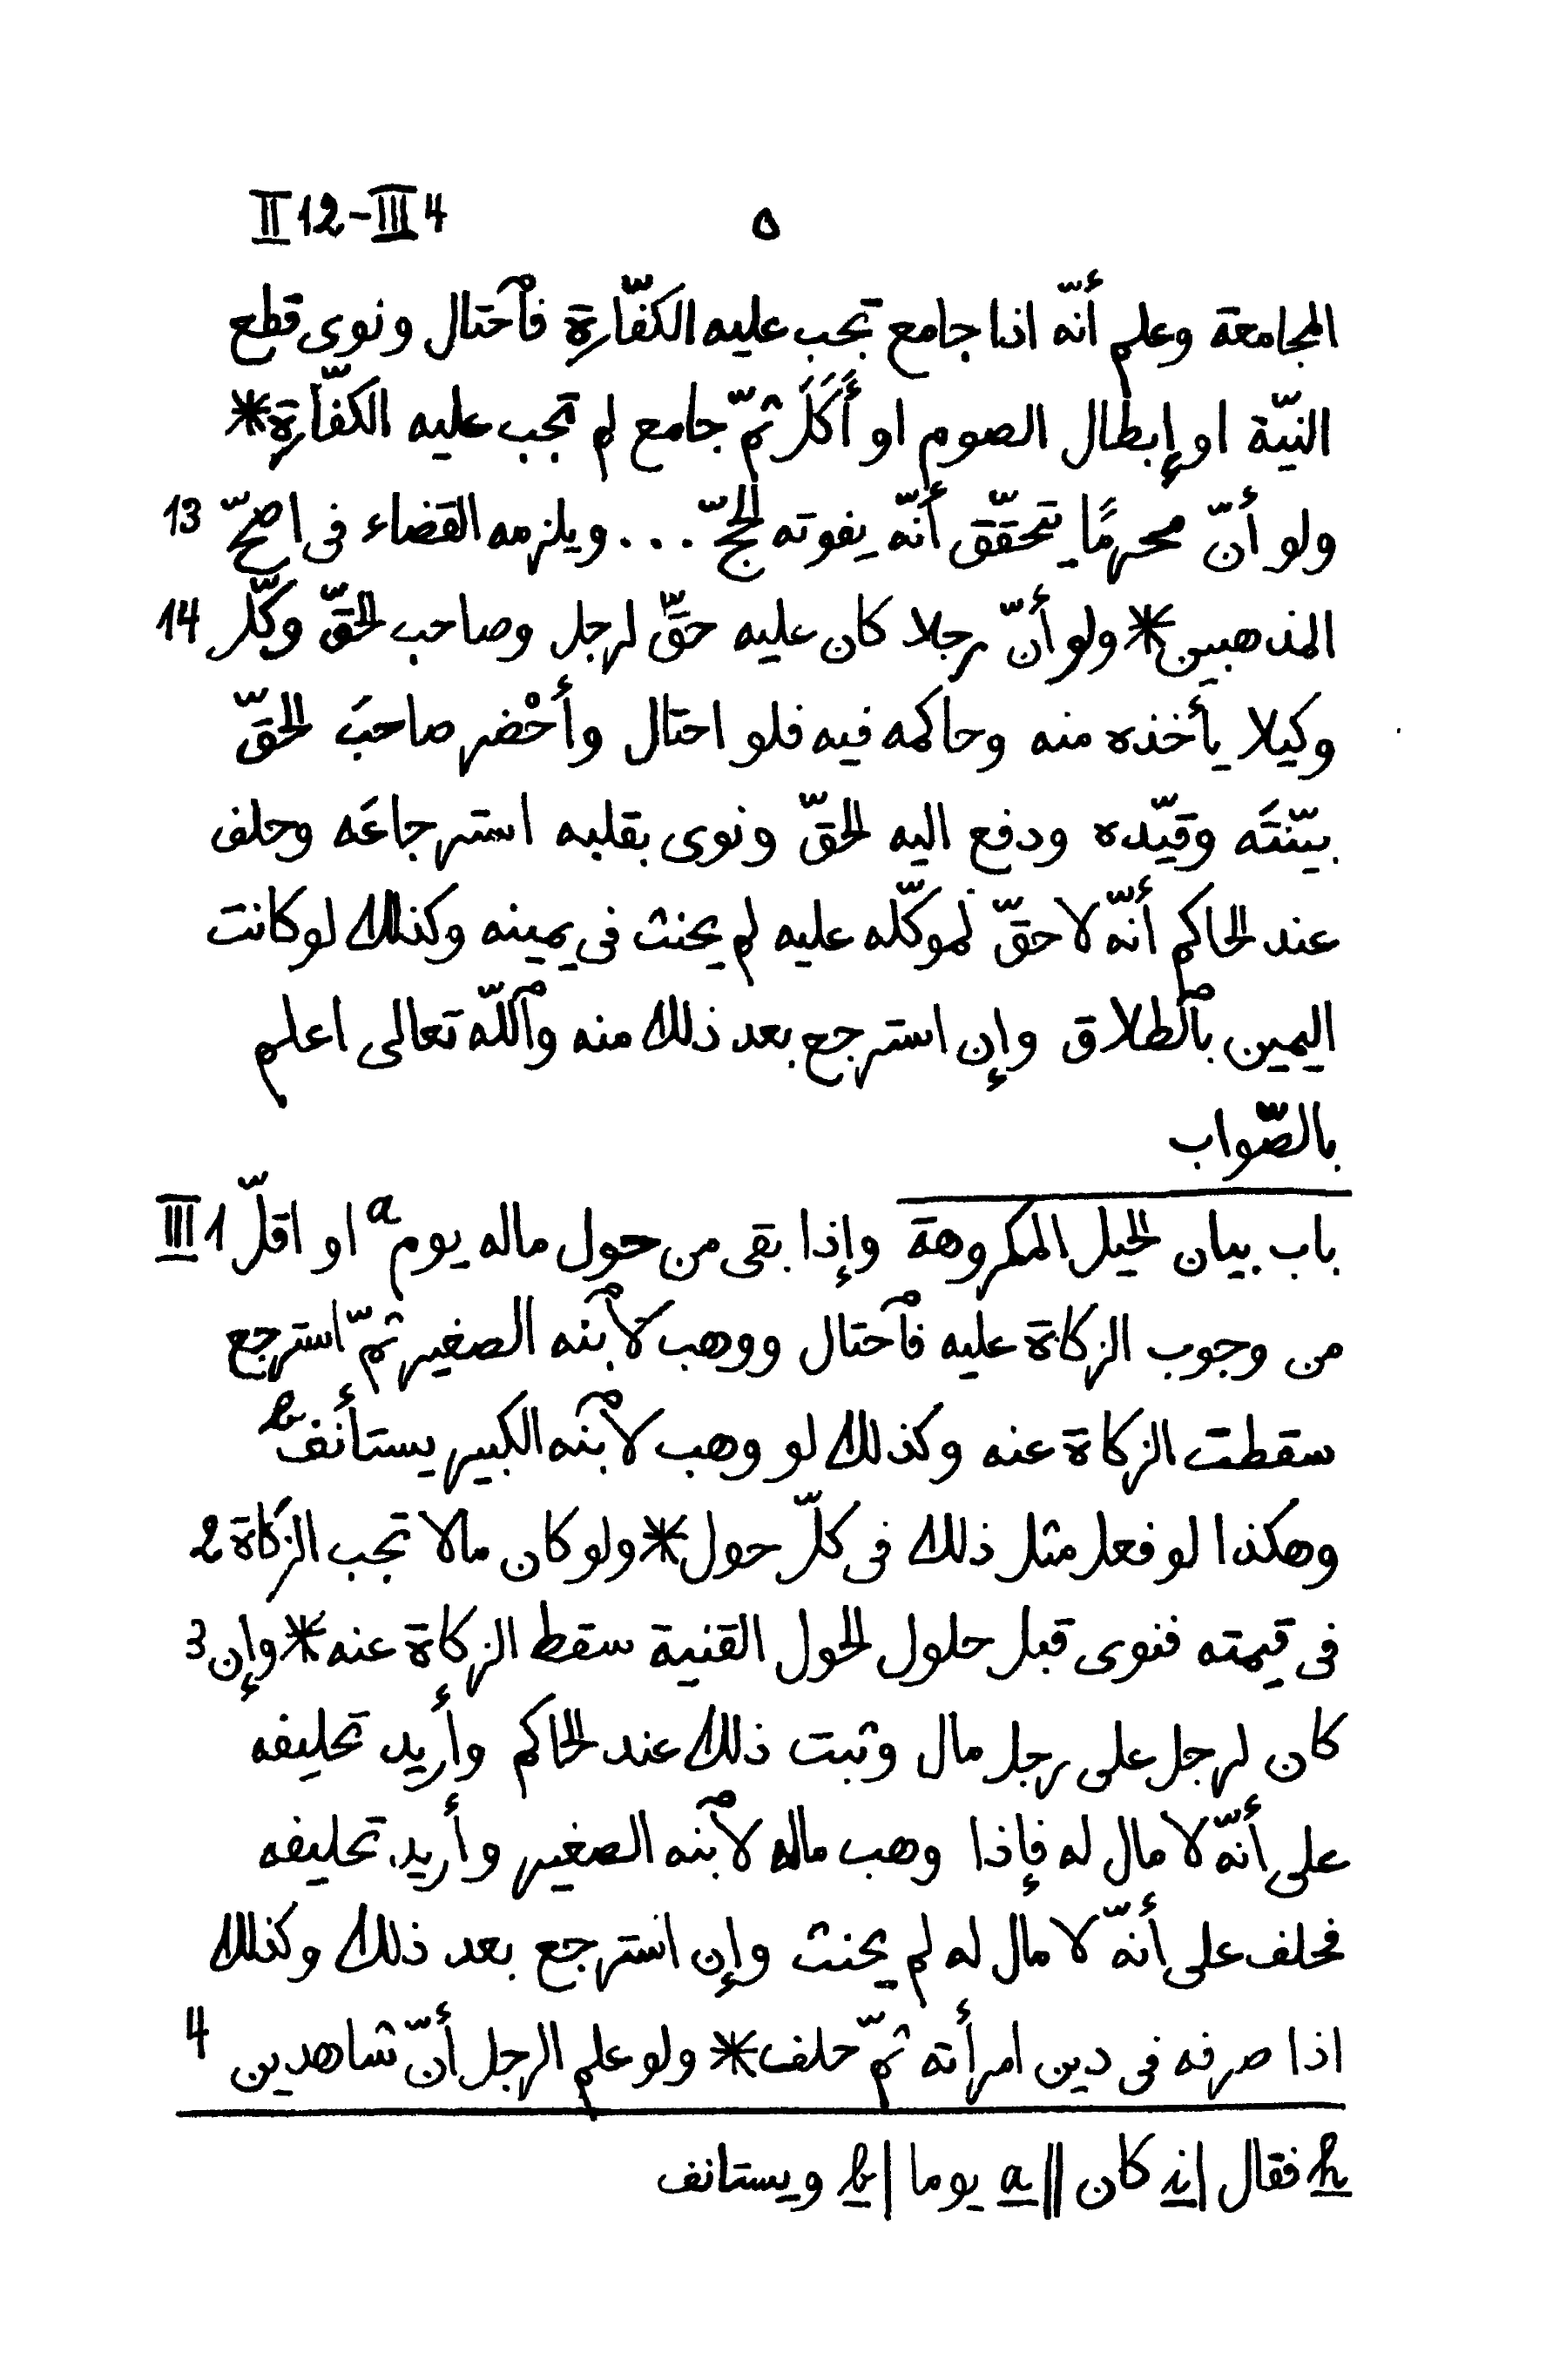 II 12-III 4 ٥
المجامعة وعلم أنّه اذا جامع تجب عليه الكفّارة فٱحتال ونوى قطع
النيّة او إبطال الصوم او أَكَلَ ثمّ جامع لم تجب عليه الكفّارة*
ولو أنّ محرمًا يتحقّق أنّه يفوته الحجّ ... ويلزمه القضاء فى اصحّ 13
المذهبين* ولو أنّ رجلا كان عليه حقّ لرجل وصاحب الحقّ وكّل 14
وكيلا يأخذه منه وحاكمه فيه فلو احتال وأحْضر صاحبَ الحقّ
بيّنتَه وقيّده ودفع اليه الحقّ ونوى بقلبه استرجاعَه وحلف
عند الحاكم أنّه لا حقّ لموكّله عليه لم يحنث فى يمينه وكذلك لو كانت
اليمين بٱلطلاق وإن استرجع بعد ذلك منه وٱللّه تعالى اعلم
بالصّواب
باب بيان الحيل المكروهة وإذا بقى من حول ماله يوم a او اقلّ III 1
من وجوب الزكاة عليه فٱحتال ووهب لٱبنه الصغير ثمّ استرجع
سقطت الزكاة عنه وكذلك لو وهب لٱبنه الكبير يستأنف b
وهكذا لو فعل مثل ذلك فى كلّ حول* ولو كان مالا تجب الزكاة 2
فى قيمته فنوى قبل حلول الحول القنية سقط الزكاة عنه* وإن 3
كان لرجل على رجل مال وثبت ذلك عند الحاكم وأريد تحليفه
على أنّه لا مال له فإذا وهب ماله لٱبنه الصغير وأريد تحليفه
فحلف على أنّه لا مال له لم يحنث وإن استرجع بعد ذلك وكذلك
اذا صرفه فى دين امرأته ثمّ حلف* ولو علم الرجل أنّ شاهدين 4
h فقال | i كان || a يوما | b ويستانف